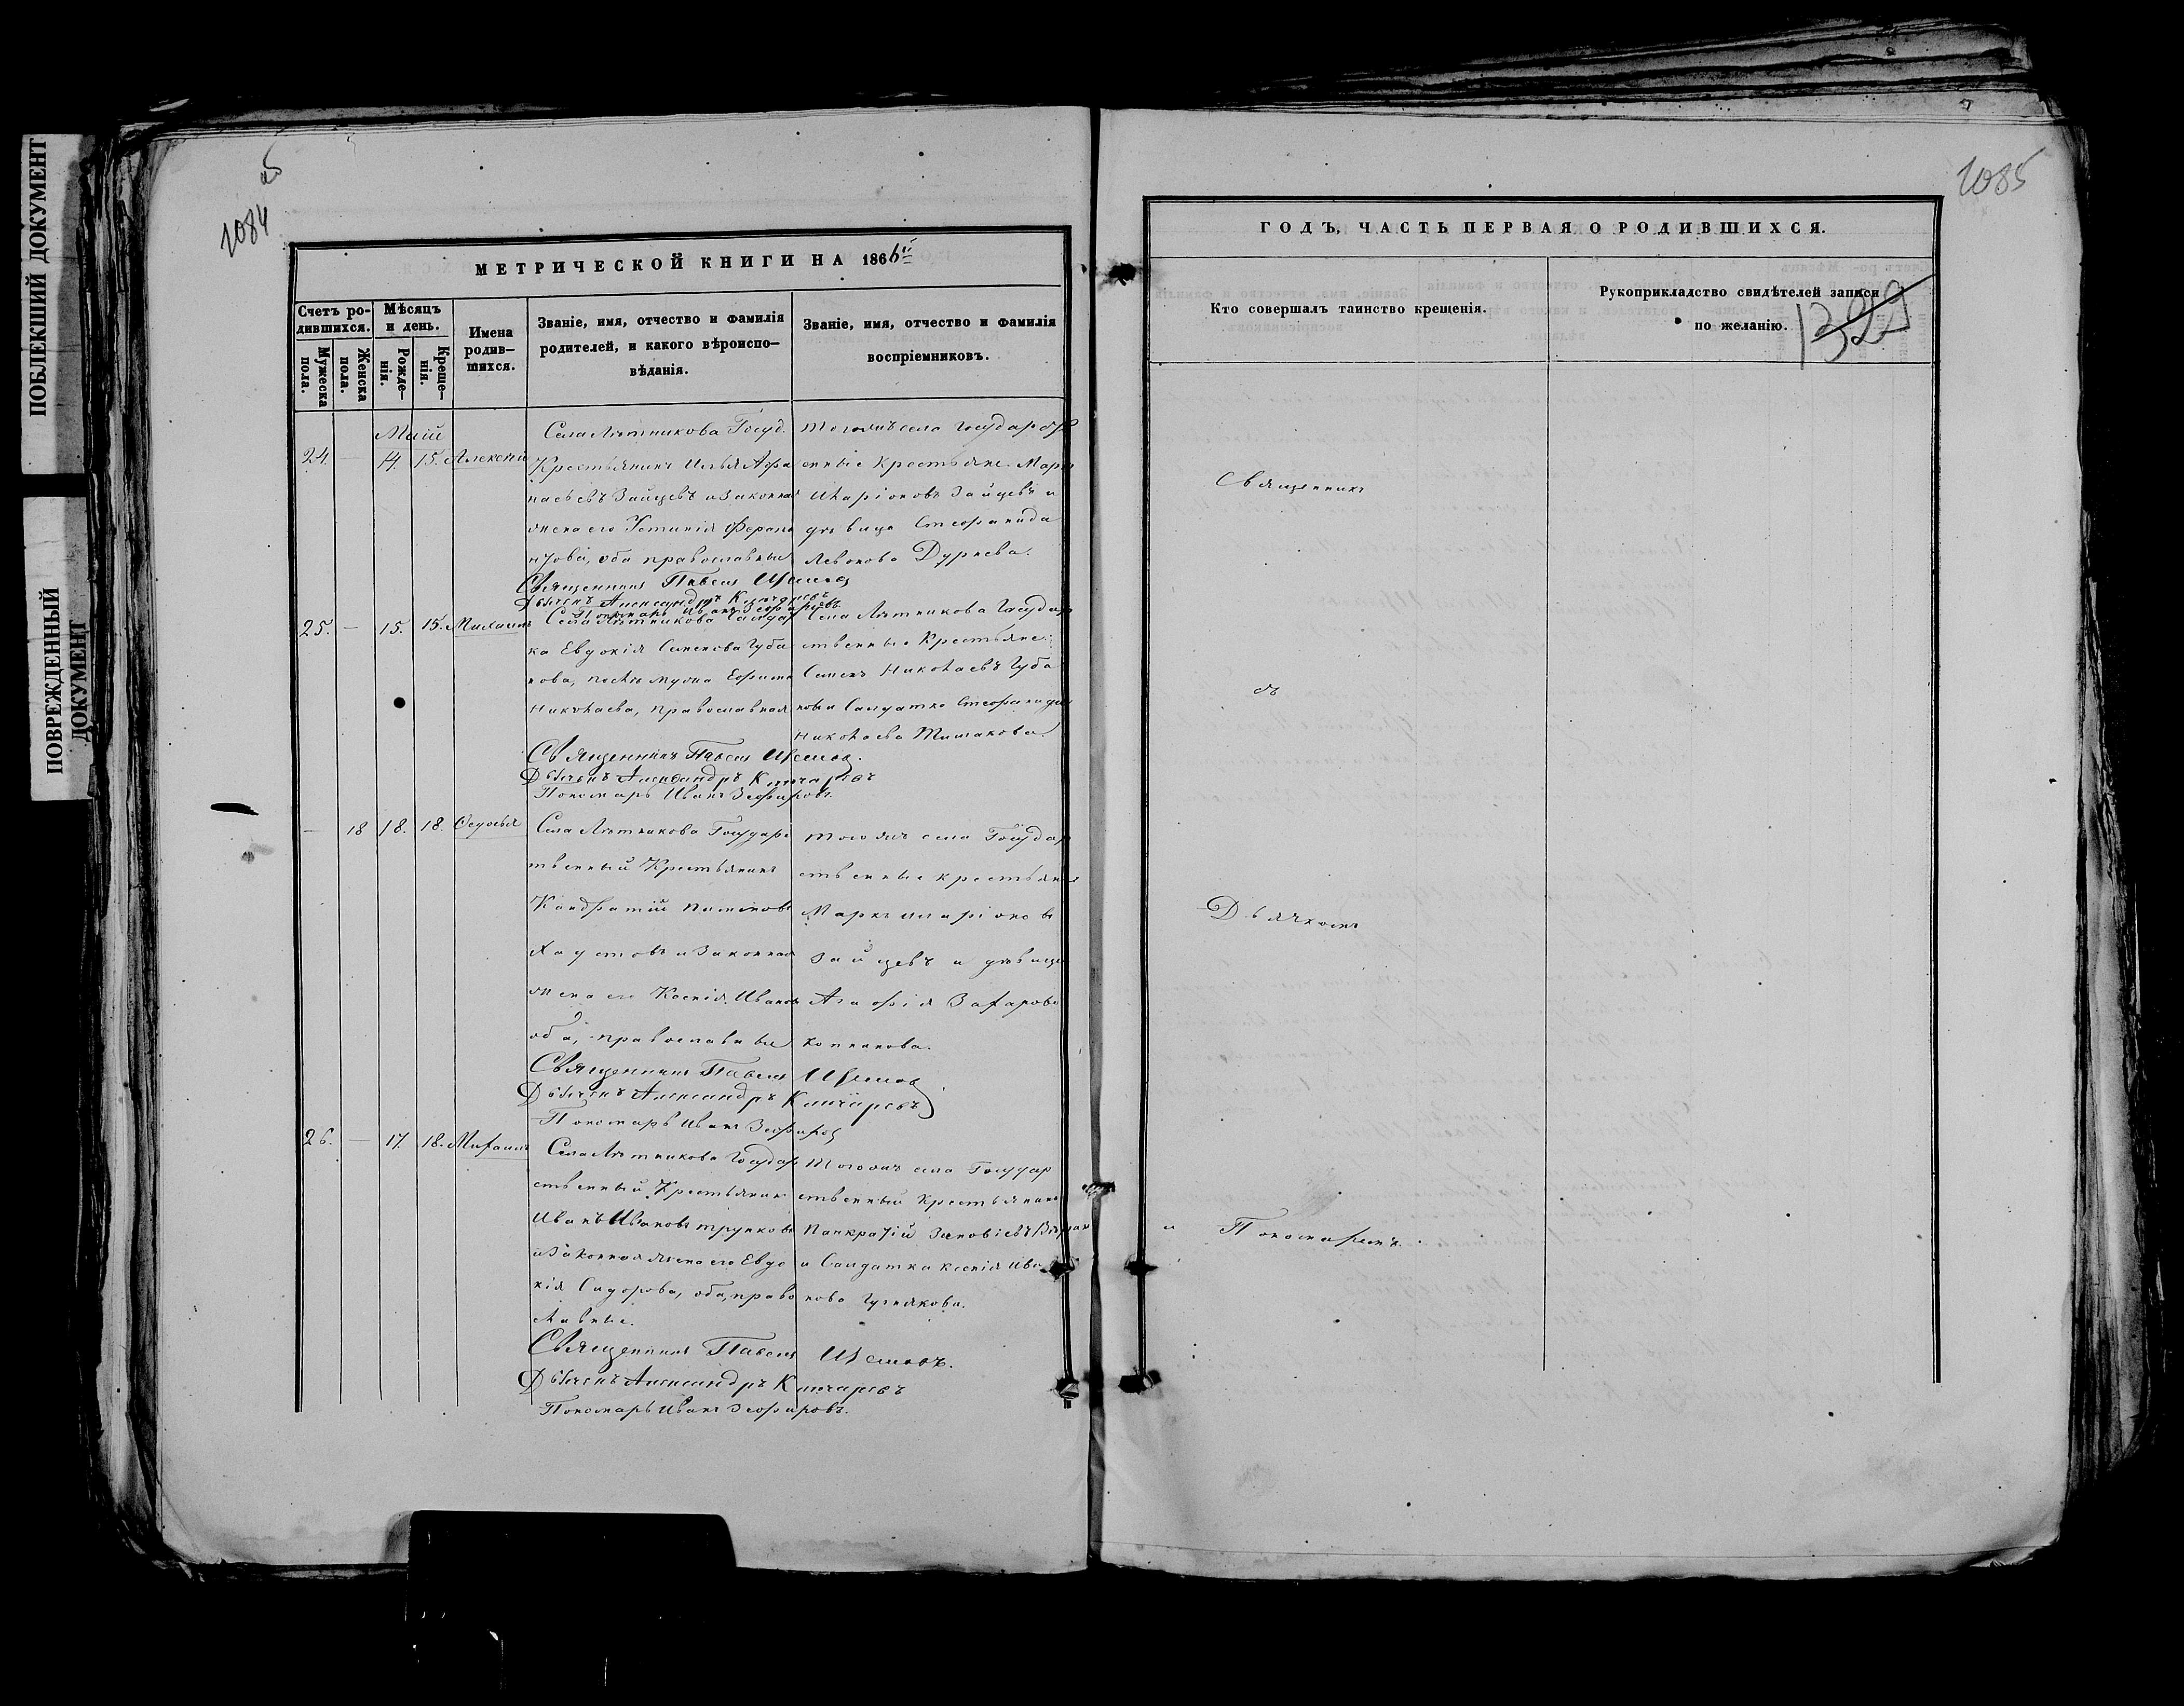 ПОБЛЕКШИЙ ДОКУМЕНТ
ПОВРЕЖДЕННЫЙ
ДОКУМЕНТ
1084
МЕТРИЧЕСКОЙ КНИГИ НА 1866й
Счетъ ро-
дившихся.
Мѣсяцъ
и день.
Мужеска
пола.
Женска
пола.
Рожде-
нія.
Креще-
нія.
Имена
родив-
шихся.
Званіе, имя, отчество и фамилія
родителей, и какого вѣроиспо-
вѣданія.
Званіе, имя, отчество и фамилія
воспріемниковъ.
Маій
24. — 14. 15. Алексій
Села Лѣтникова Госуд.
Крестьянинъ Илья Афа
насьевъ Зайцевъ и законная
жена его Устинія Ферапо
нтова, оба православные
Тогожъ села Государст
енные крестьяне Марк
Иларіоновъ Зайцевъ и
дѣвица Стефанида
Левонова Дурнева.
Священникъ Павелъ
Дьячекъ Александръ
Пономарь Иванъ Зефировъ
25. — 15. 15. Михаилъ
Села Лѣтникова Салдат
ка Евдокія Симеонова Губа
нова, послѣ мужа Ефима
Николаева, православная
Села Лѣтникова Государ
ственные Крестьяне:
Симеонъ Николаевъ Губа
новъ и Салдатка Стефанида
Николаева
Священникъ Павелъ
Дьячекъ Александръ
Пономарь Иванъ Зефировъ.
— 18 18. 18. Федосья
Села Лѣтникова Государс
твенный Крестьянинъ
Кандратій Пименовъ
Хаустовъ и законная
жена его Ксенія Иванова
оба, православные
тогожъ села Государ
ственные крестьяне
Маркъ Иларіоновъ
Зайцевъ и дѣвица
Агафія Захарова
Копинова.
Священникъ Павелъ
Дьячекъ Александръ
Пономарь Иванъ Зефировъ
26. — 17. 18. Михаилъ
Села Лѣтникова Государ
ственный Крестьянинъ
Иванъ Ивановъ Труновъ
и законная жена его Евдо
кія Сидорова, оба, право
славные.
Тогожъ села Государ
ственный Крестьянинъ
Панкратій Зиновіевъ
и Салдатка Ксенія Ива
нова Гузнякова.
Священникъ Павелъ
Дьячекъ Александръ
Пономарь Иванъ Зефировъ.
1085
ГОДЪ, ЧАСТЬ ПЕРВАЯ О РОДИВШИХСЯ.
Кто совершалъ таинство крещенія.
Рукоприкладство свидѣтелей записи
по желанію.
1329
Священникъ
съ
Дьячкомъ
и Пономаремъ.